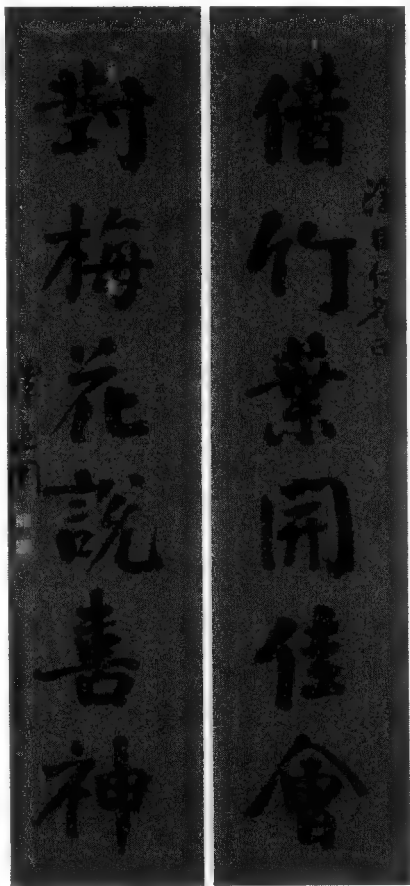 借竹葉開佳會
對梅花說喜神